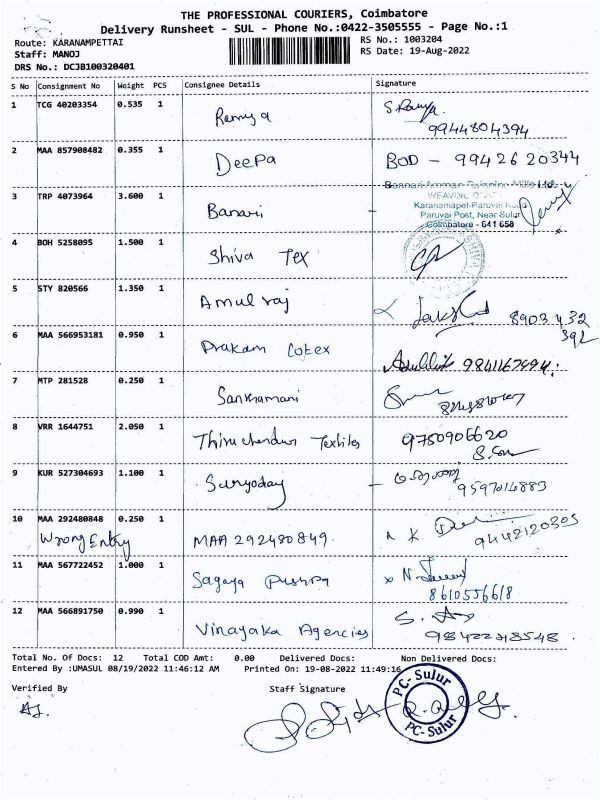 THE PROFESSIONAL COURIERS, Coimbatore
Delivery Runsheet - SUL - Phone No.:0422-3505555 - Page No.:1
Route: KARANAMPETTAI
RS No.: 1003204
Staff: MANOJ
RS Date: 19-Aug-2022
DRS No.: DCJB100320401
S No Consignment No Weight PCS Consignee Details Signature
1 TCG 40203354 0.535 1 Ramya S. Ramya
9944804394
2 MAA 857908482 0.355 1 Deepa BOD - 9942620344
Bannari Amman Spinning Mills Ltd.
WEAVING
3 TRP 4073964 3.600 1 Banari -
Karanampet-Paruvai Road
Paruvai Post, Near Sulur
Coimbatore - 641 658
4 BOH 5258095 1.500 1 Shiva Tex
5 STY 820566 1.350 1 Amulraj 8903432
392
6 MAA 566953181 0.950 1 Prakam Cotex
7 MTP 281528 0.250 1 Sankramani
8 VRR 1644751 2.050 1 Thiruchendur Textiles 9750906620
9 KUR 527304693 1.100 1 Suryoday -
9597014883
10 MAA 292480848 0.250 1 MAA 292480849.
Wrong Entry 9442120305
11 MAA 567722452 1.000 1 Sagaya Pushpa
8610556618
12 MAA 566891750 0.990 1 Vinayaka Agencies
Total No. Of Docs: 12 Total COD Amt: 0.00 Delivered Docs: Non Delivered Docs:
Entered By :UMASUL 08/19/2022 11:46:12 AM Printed On: 19-08-2022 11:49:16
Verified By Staff Signature
PC-Sulur
PC-Sulur